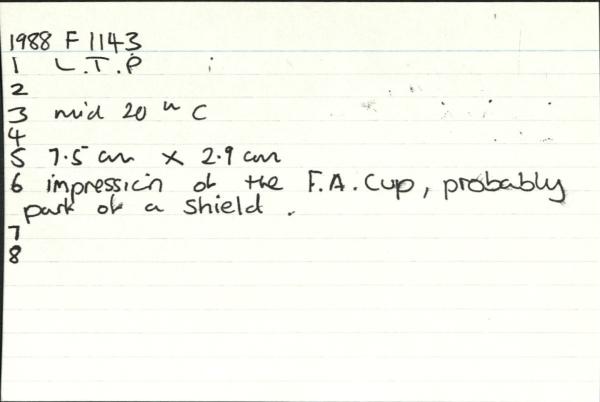 1988 F 1143
1 L.T.P
2
3 mid 20 th C
4
5 7.5 cm x 2.9 cm
6 impression of the F.A. Cup, probably
part of a shield.
7
8